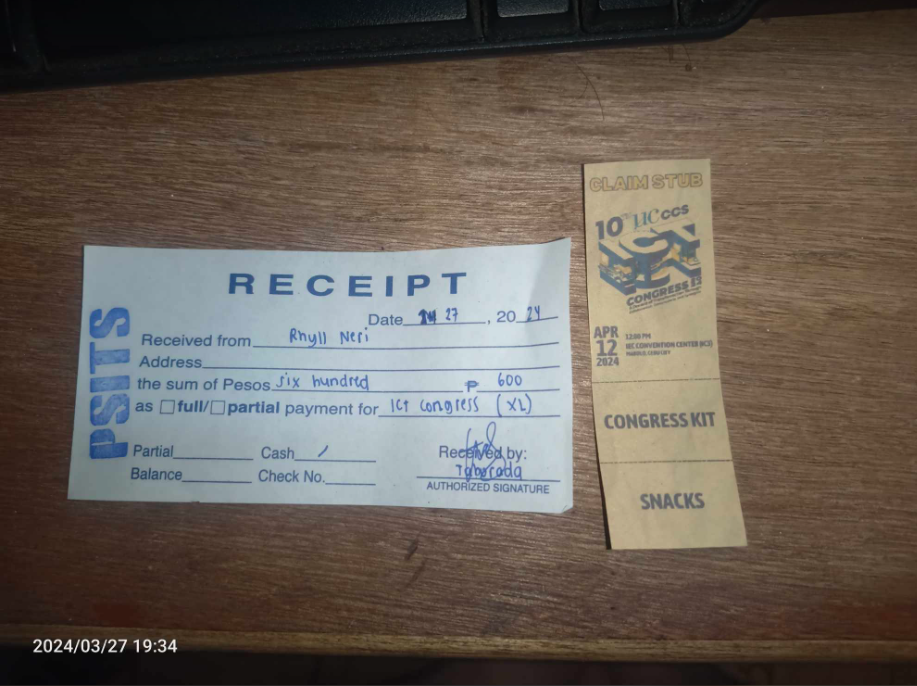 RECEIPT
Date 27, 20 24
Received from Rhyll Neri
Address
the sum of Pesos six hundred ₱ 600
as full/ partial payment for ICT congress (XL)
Partial Cash /
Balance Check No.
Received by:
Taborada
AUTHORIZED SIGNATURE
PSITS
CLAIM STUB
10th UC CCS
ICT
CONGRESS
APR
12
2024
12:00 PM
IEC CONVENTION CENTER (IC3)
CONGRESS KIT
SNACKS
2024/03/27 19:34